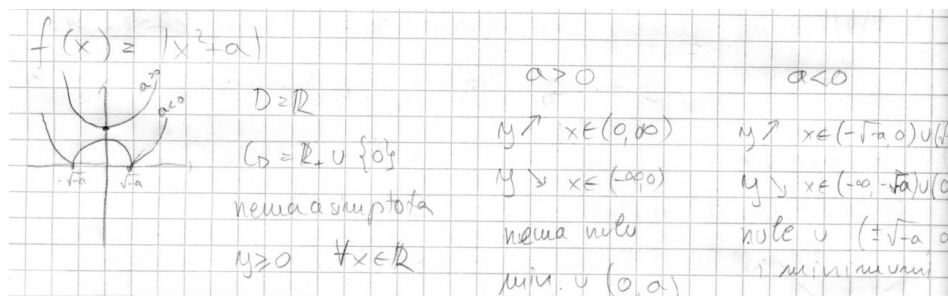 f(x) = |x²+a|
a>0
a<0
-√-a
√-a
D = ℝ
CD = ℝ+ ∪ {0}
nema asimptota
y≥0 ∀x∈ℝ
a>0
y↗ x∈(0,∞)
y↘ x∈(-∞,0)
nema nulu
min. u (0,a)
a<0
y↗ x∈(-√-a,0)∪(√
y↘ x∈(-∞,-√-a)∪(0
nule u (±√-a,0
i minimumi